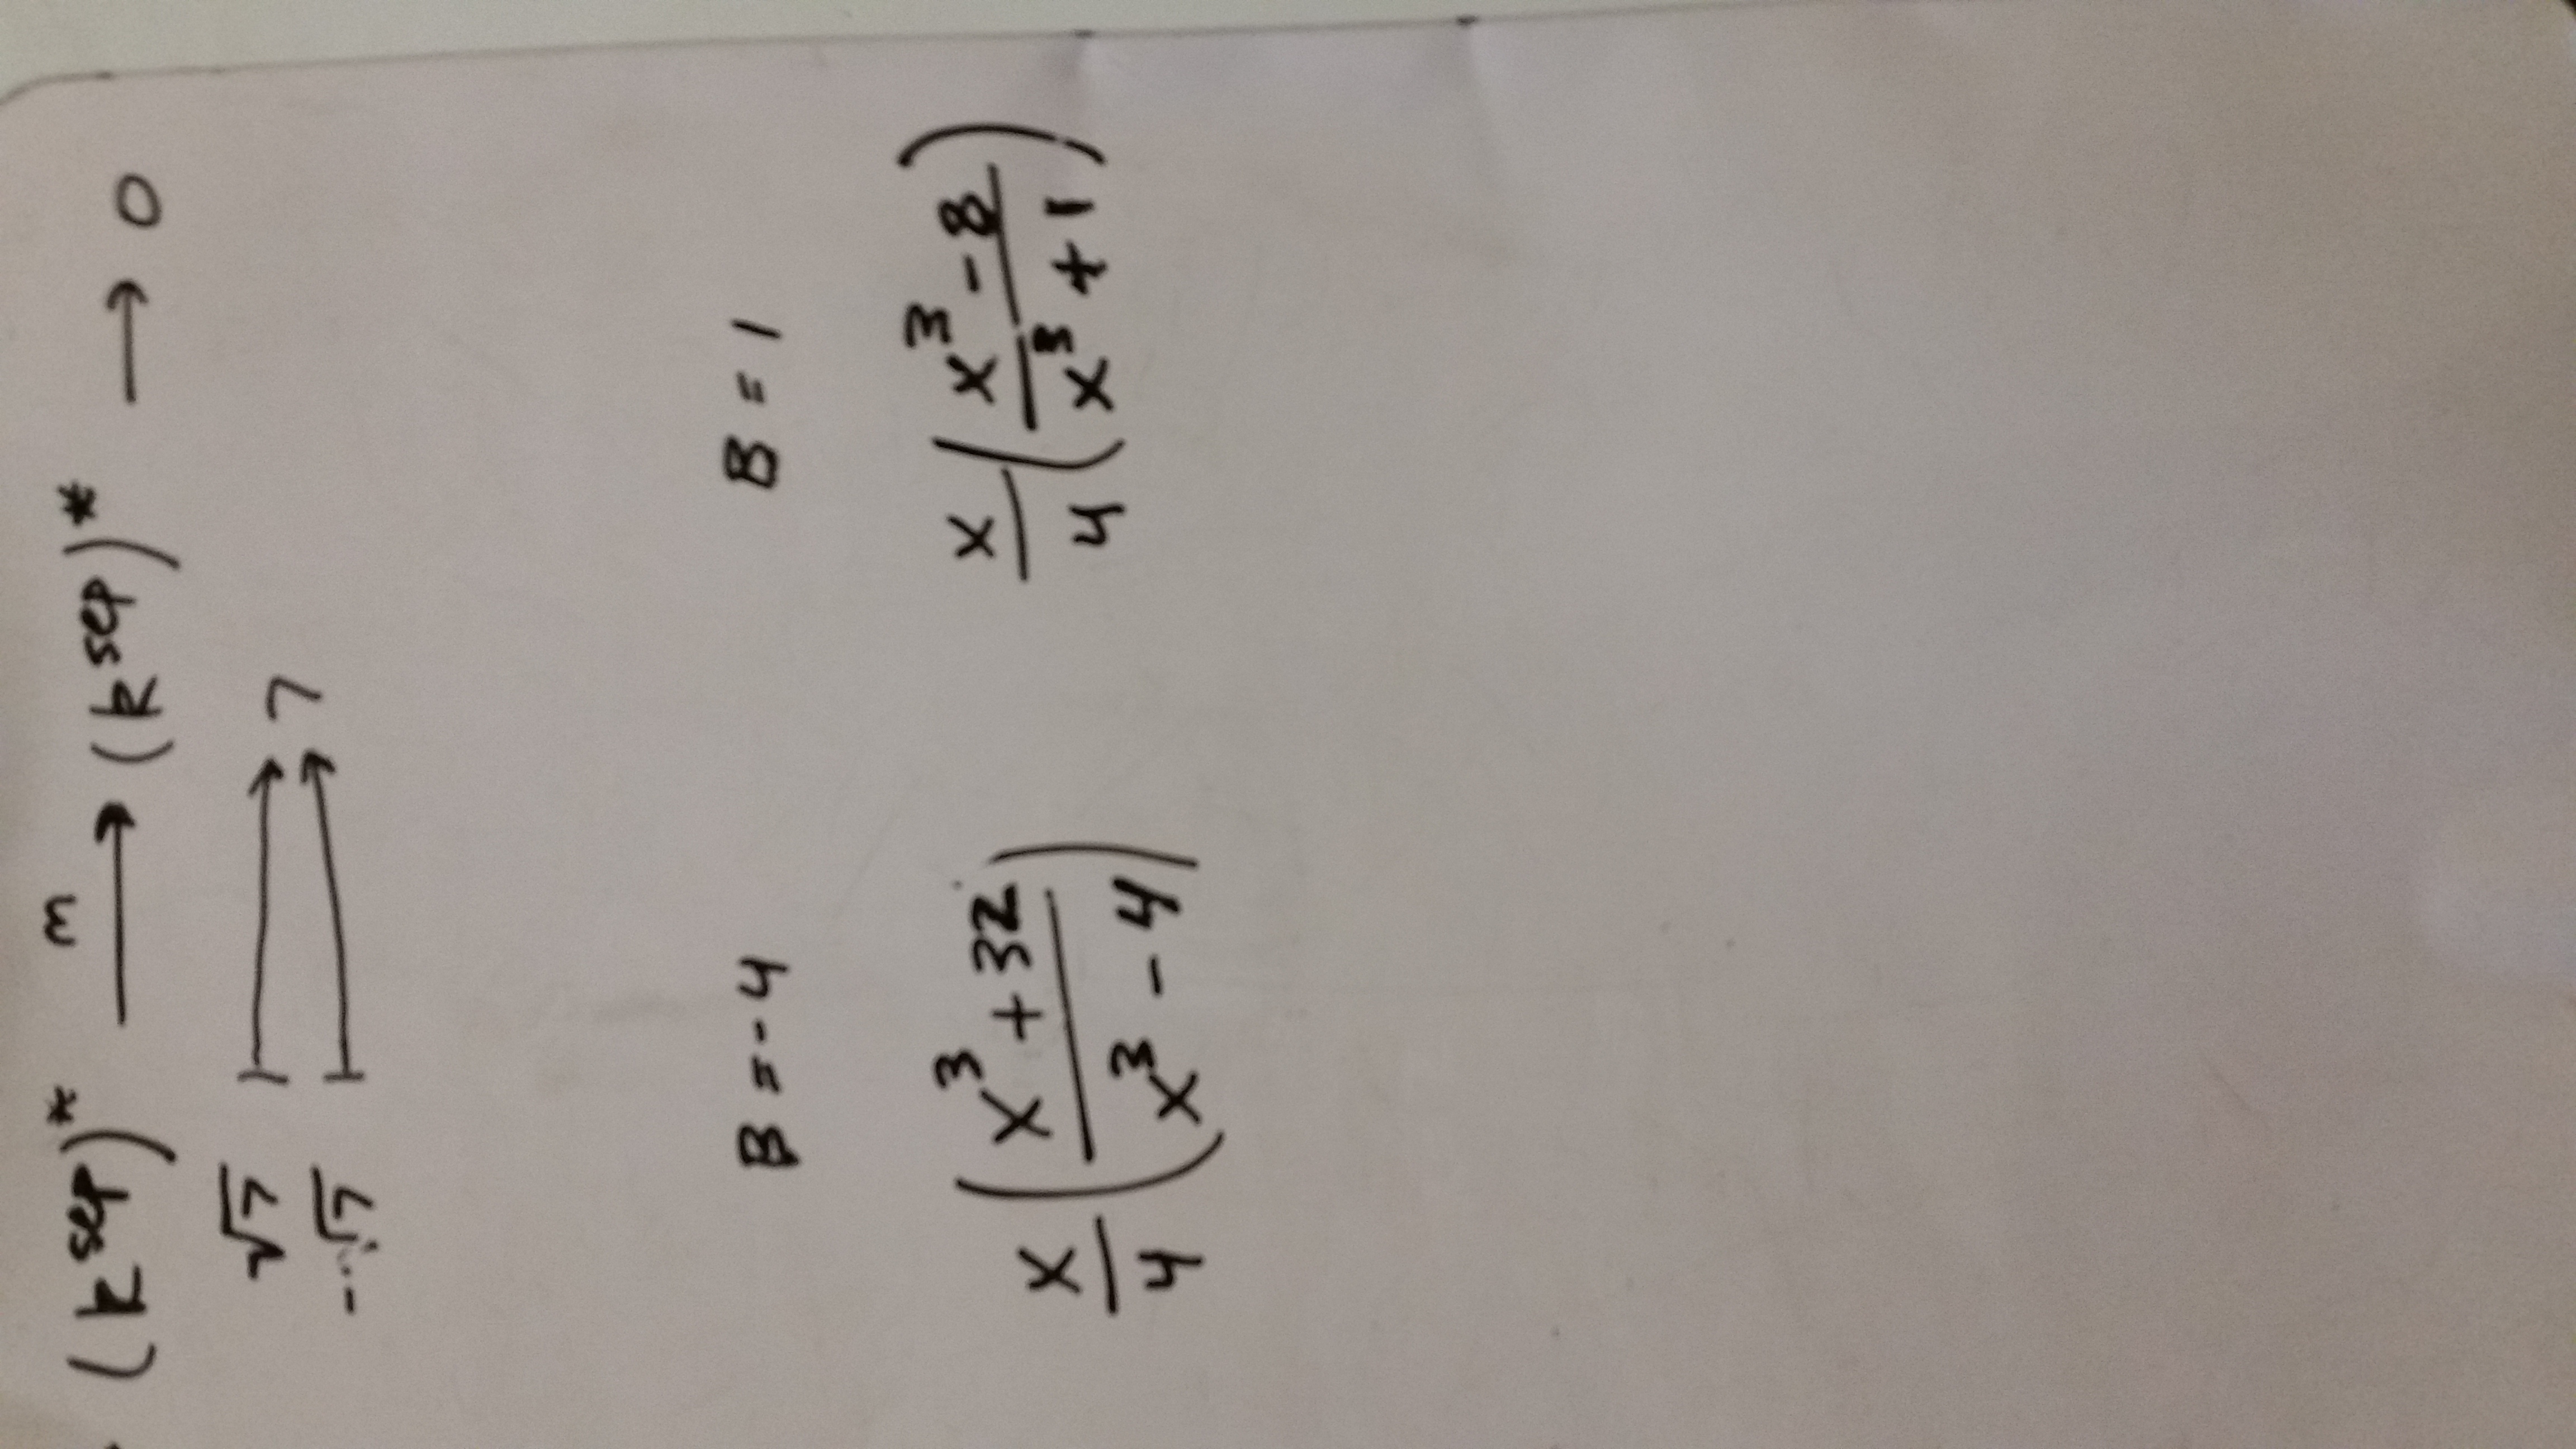 (k^sep)^* —m→ (k^sep)^* → 0
√7 ↦ 7
-√7 ↦
B = -4 B = 1
x/4 (x^3 + 32 / x^3 - 4) x/4 (x^3 - 8 / x^3 + 1)